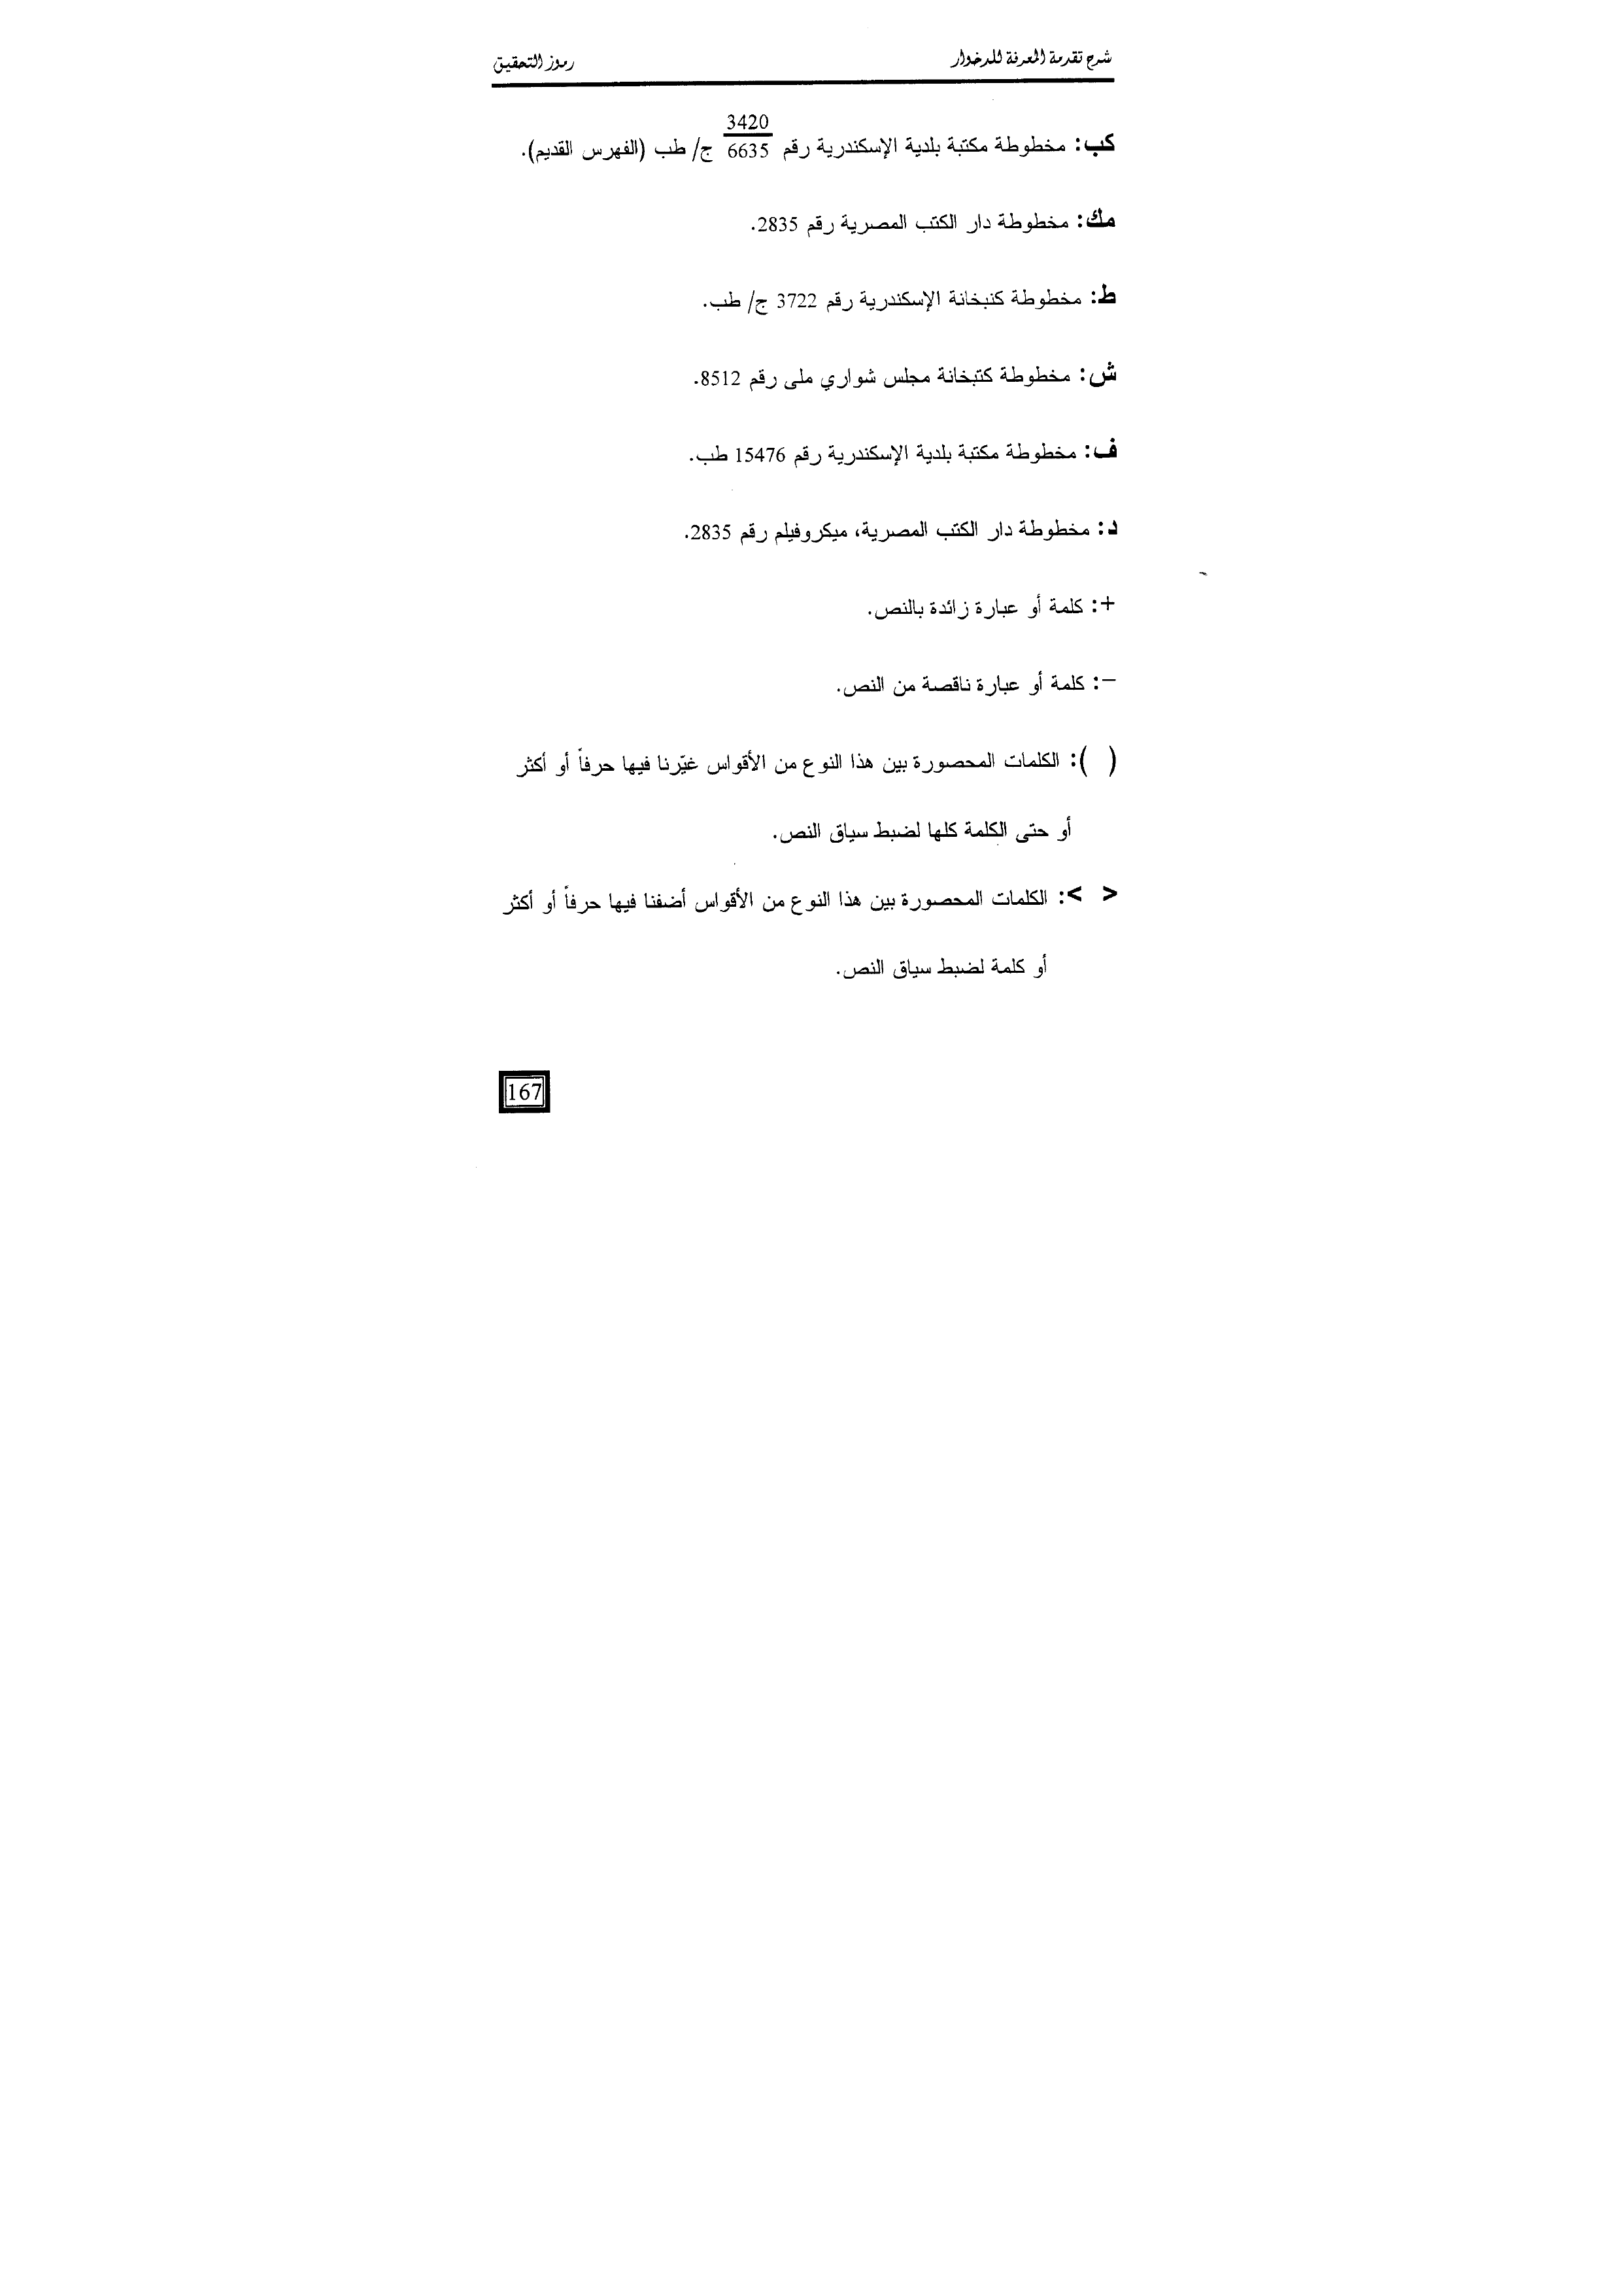 شرح تقدمة المعرفة للدخوار
رموز التحقيق
كب: مخطوطة مكتبة بلدية الإسكندرية رقم 3420/6635 ج/ طب (الفهرس القديم).
مك: مخطوطة دار الكتب المصرية رقم 2835.
ط: مخطوطة كنبخانة الإسكندرية رقم 3722 ج/ طب.
ش: مخطوطة كتبخانة مجلس شواري ملى رقم 8512.
ف: مخطوطة مكتبة بلدية الإسكندرية رقم 15476 طب.
د: مخطوطة دار الكتب المصرية، ميكروفيلم رقم 2835.
+: كلمة أو عبارة زائدة بالنص.
–: كلمة أو عبارة ناقصة من النص.
( ): الكلمات المحصورة بين هذا النوع من الأقواس غيّرنا فيها حرفاً أو أكثر
أو حتى الكلمة كلها لضبط سياق النص.
< >: الكلمات المحصورة بين هذا النوع من الأقواس أضفنا فيها حرفاً أو أكثر
أو كلمة لضبط سياق النص.
167